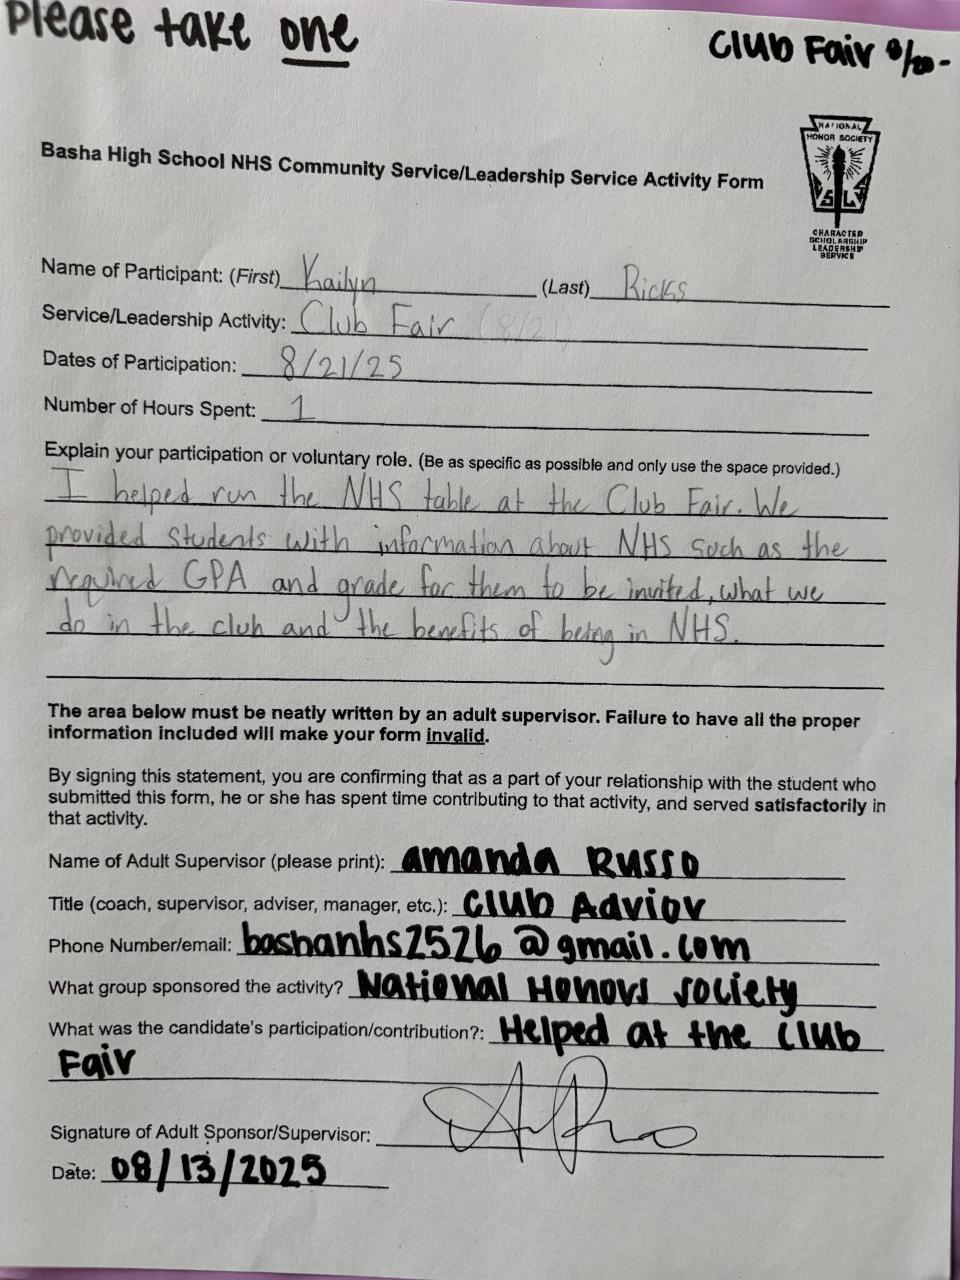 Please take one
Club Fair 8/20-
NATIONAL
HONOR SOCIETY
S L
CHARACTER
SCHOLARSHIP
LEADERSHIP
SERVICE
Basha High School NHS Community Service/Leadership Service Activity Form
Name of Participant: (First) Kailyn (Last) Ricks
Service/Leadership Activity: Club Fair (8/21)
Dates of Participation: 8/21/25
Number of Hours Spent: 1
Explain your participation or voluntary role. (Be as specific as possible and only use the space provided.)
I helped run the NHS table at the Club Fair. We
provided students with information about NHS such as the
required GPA and grade for them to be invited, what we
do in the club and the benefits of being in NHS.
The area below must be neatly written by an adult supervisor. Failure to have all the proper
information included will make your form invalid.
By signing this statement, you are confirming that as a part of your relationship with the student who
submitted this form, he or she has spent time contributing to that activity, and served satisfactorily in
that activity.
Name of Adult Supervisor (please print): amanda Russo
Title (coach, supervisor, adviser, manager, etc.): Club Advior
Phone Number/email: bashanhs2526@gmail.com
What group sponsored the activity? National Honors Society
What was the candidate's participation/contribution?: Helped at the Club
Fair
Signature of Adult Sponsor/Supervisor:
Date: 08/13/2025